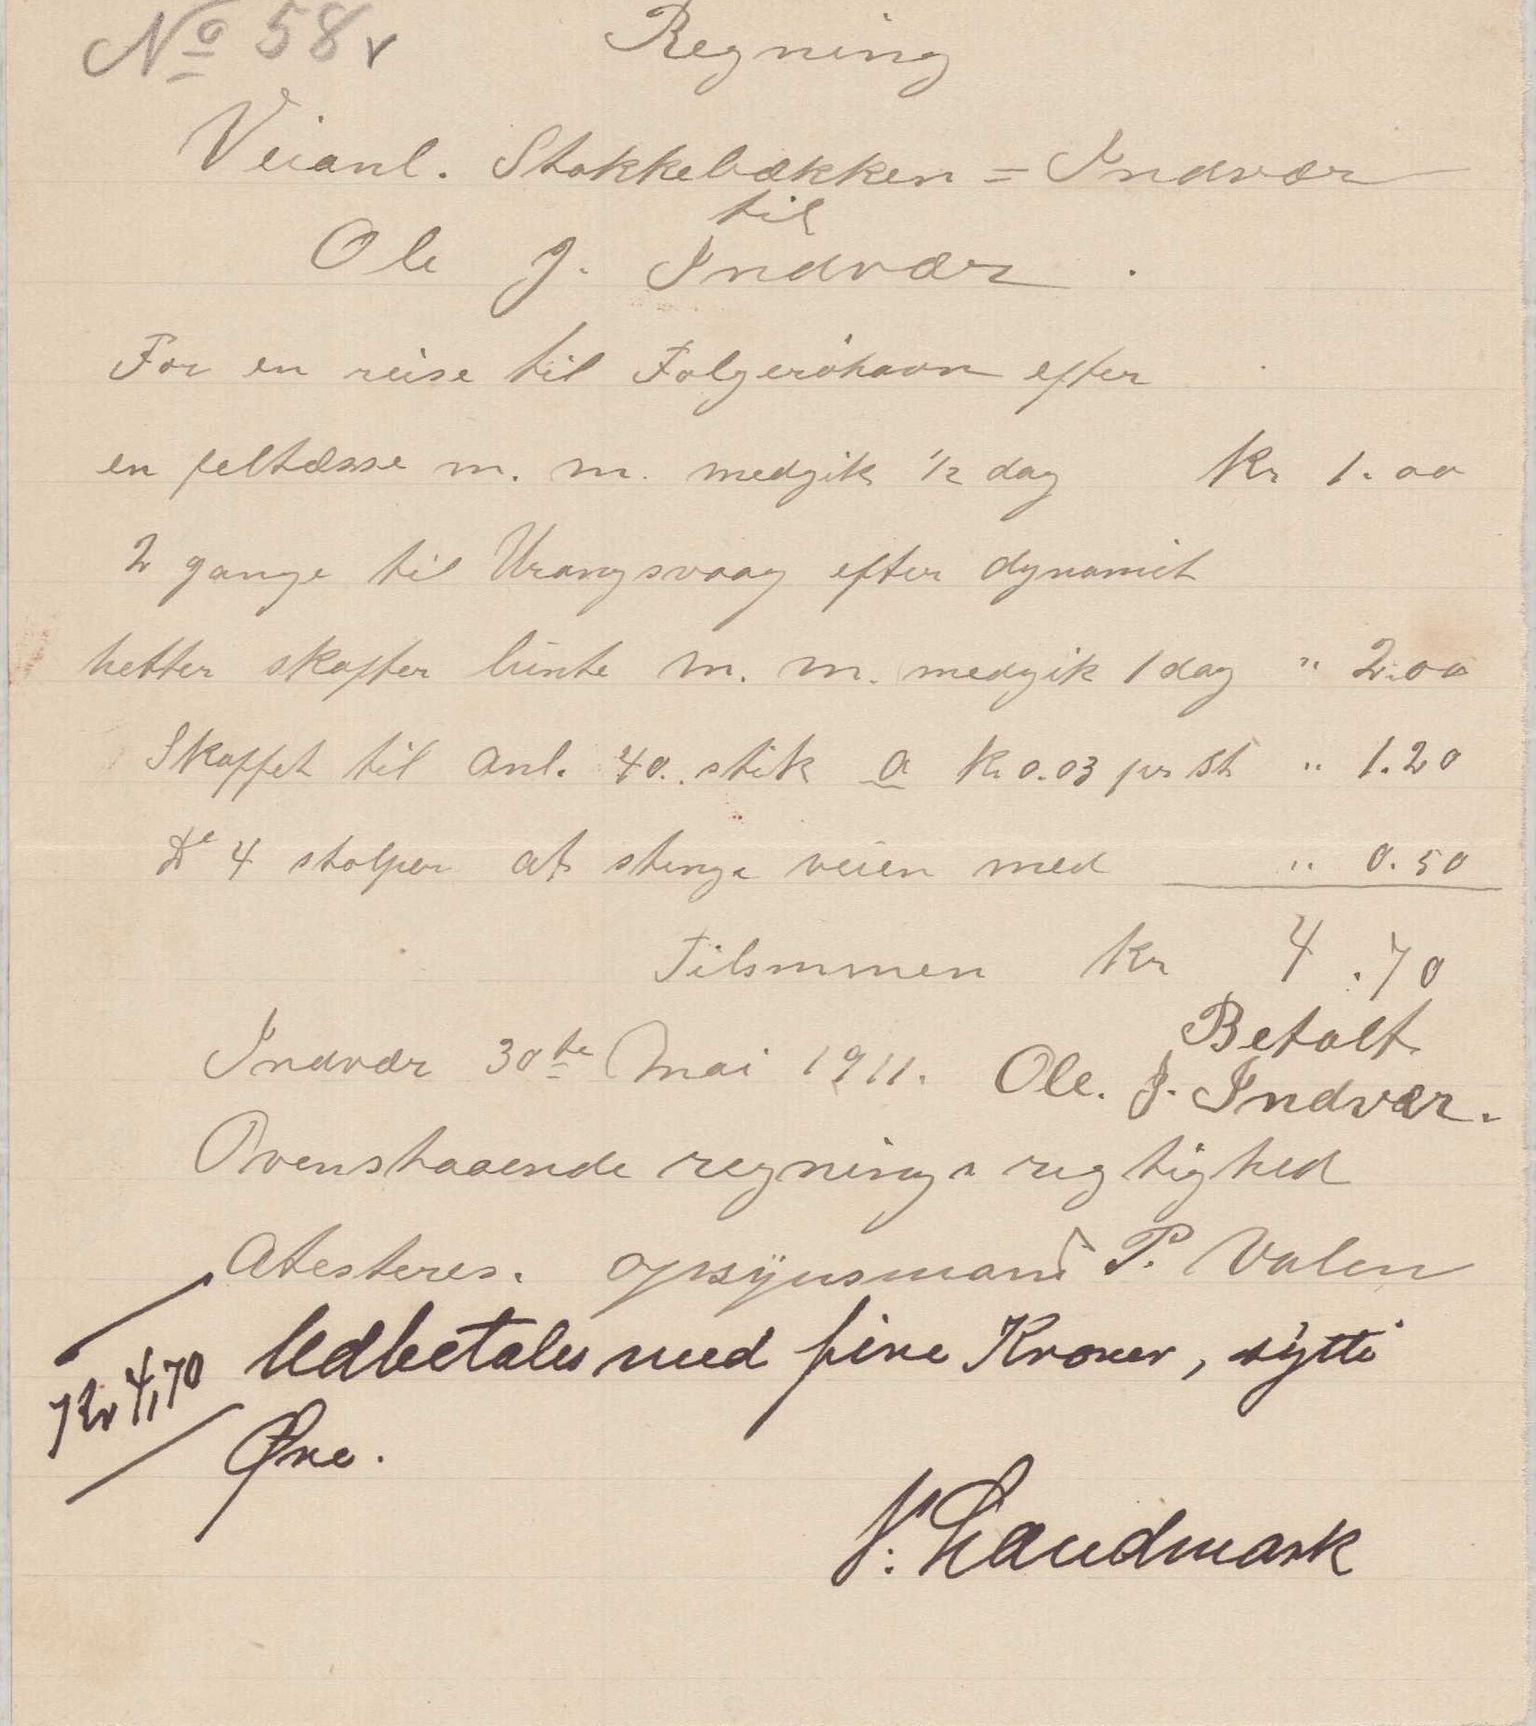 No 58 v
Regning
Veianl. Stokkebækken = Indvær
til
Ole J. Indvær.
For en reise til Folgerøhavn efter
en feltæsse m. m. medgik 1/2 dag Kr 1.00
2 gange til Urangsvaag efter dynamit
hetter skafter lunte m. m. medgik 1 dag " 2.00
Skaffet til anl. 40. stik a Kr 0.03 pr st " 1.20
De 4 stolper at stenge veien med " 0.50
Tilsmmen Kr 4.70
Betalt
Indvær 30te Mai 1911. Ole. J. Indvær.
Ovenstaaende regnings rigtighed
Atesteres. opsynsmand P. Valen
Udbetales med fire Kroner, sytti
Kr 4,70
Øre.
N. Landmark